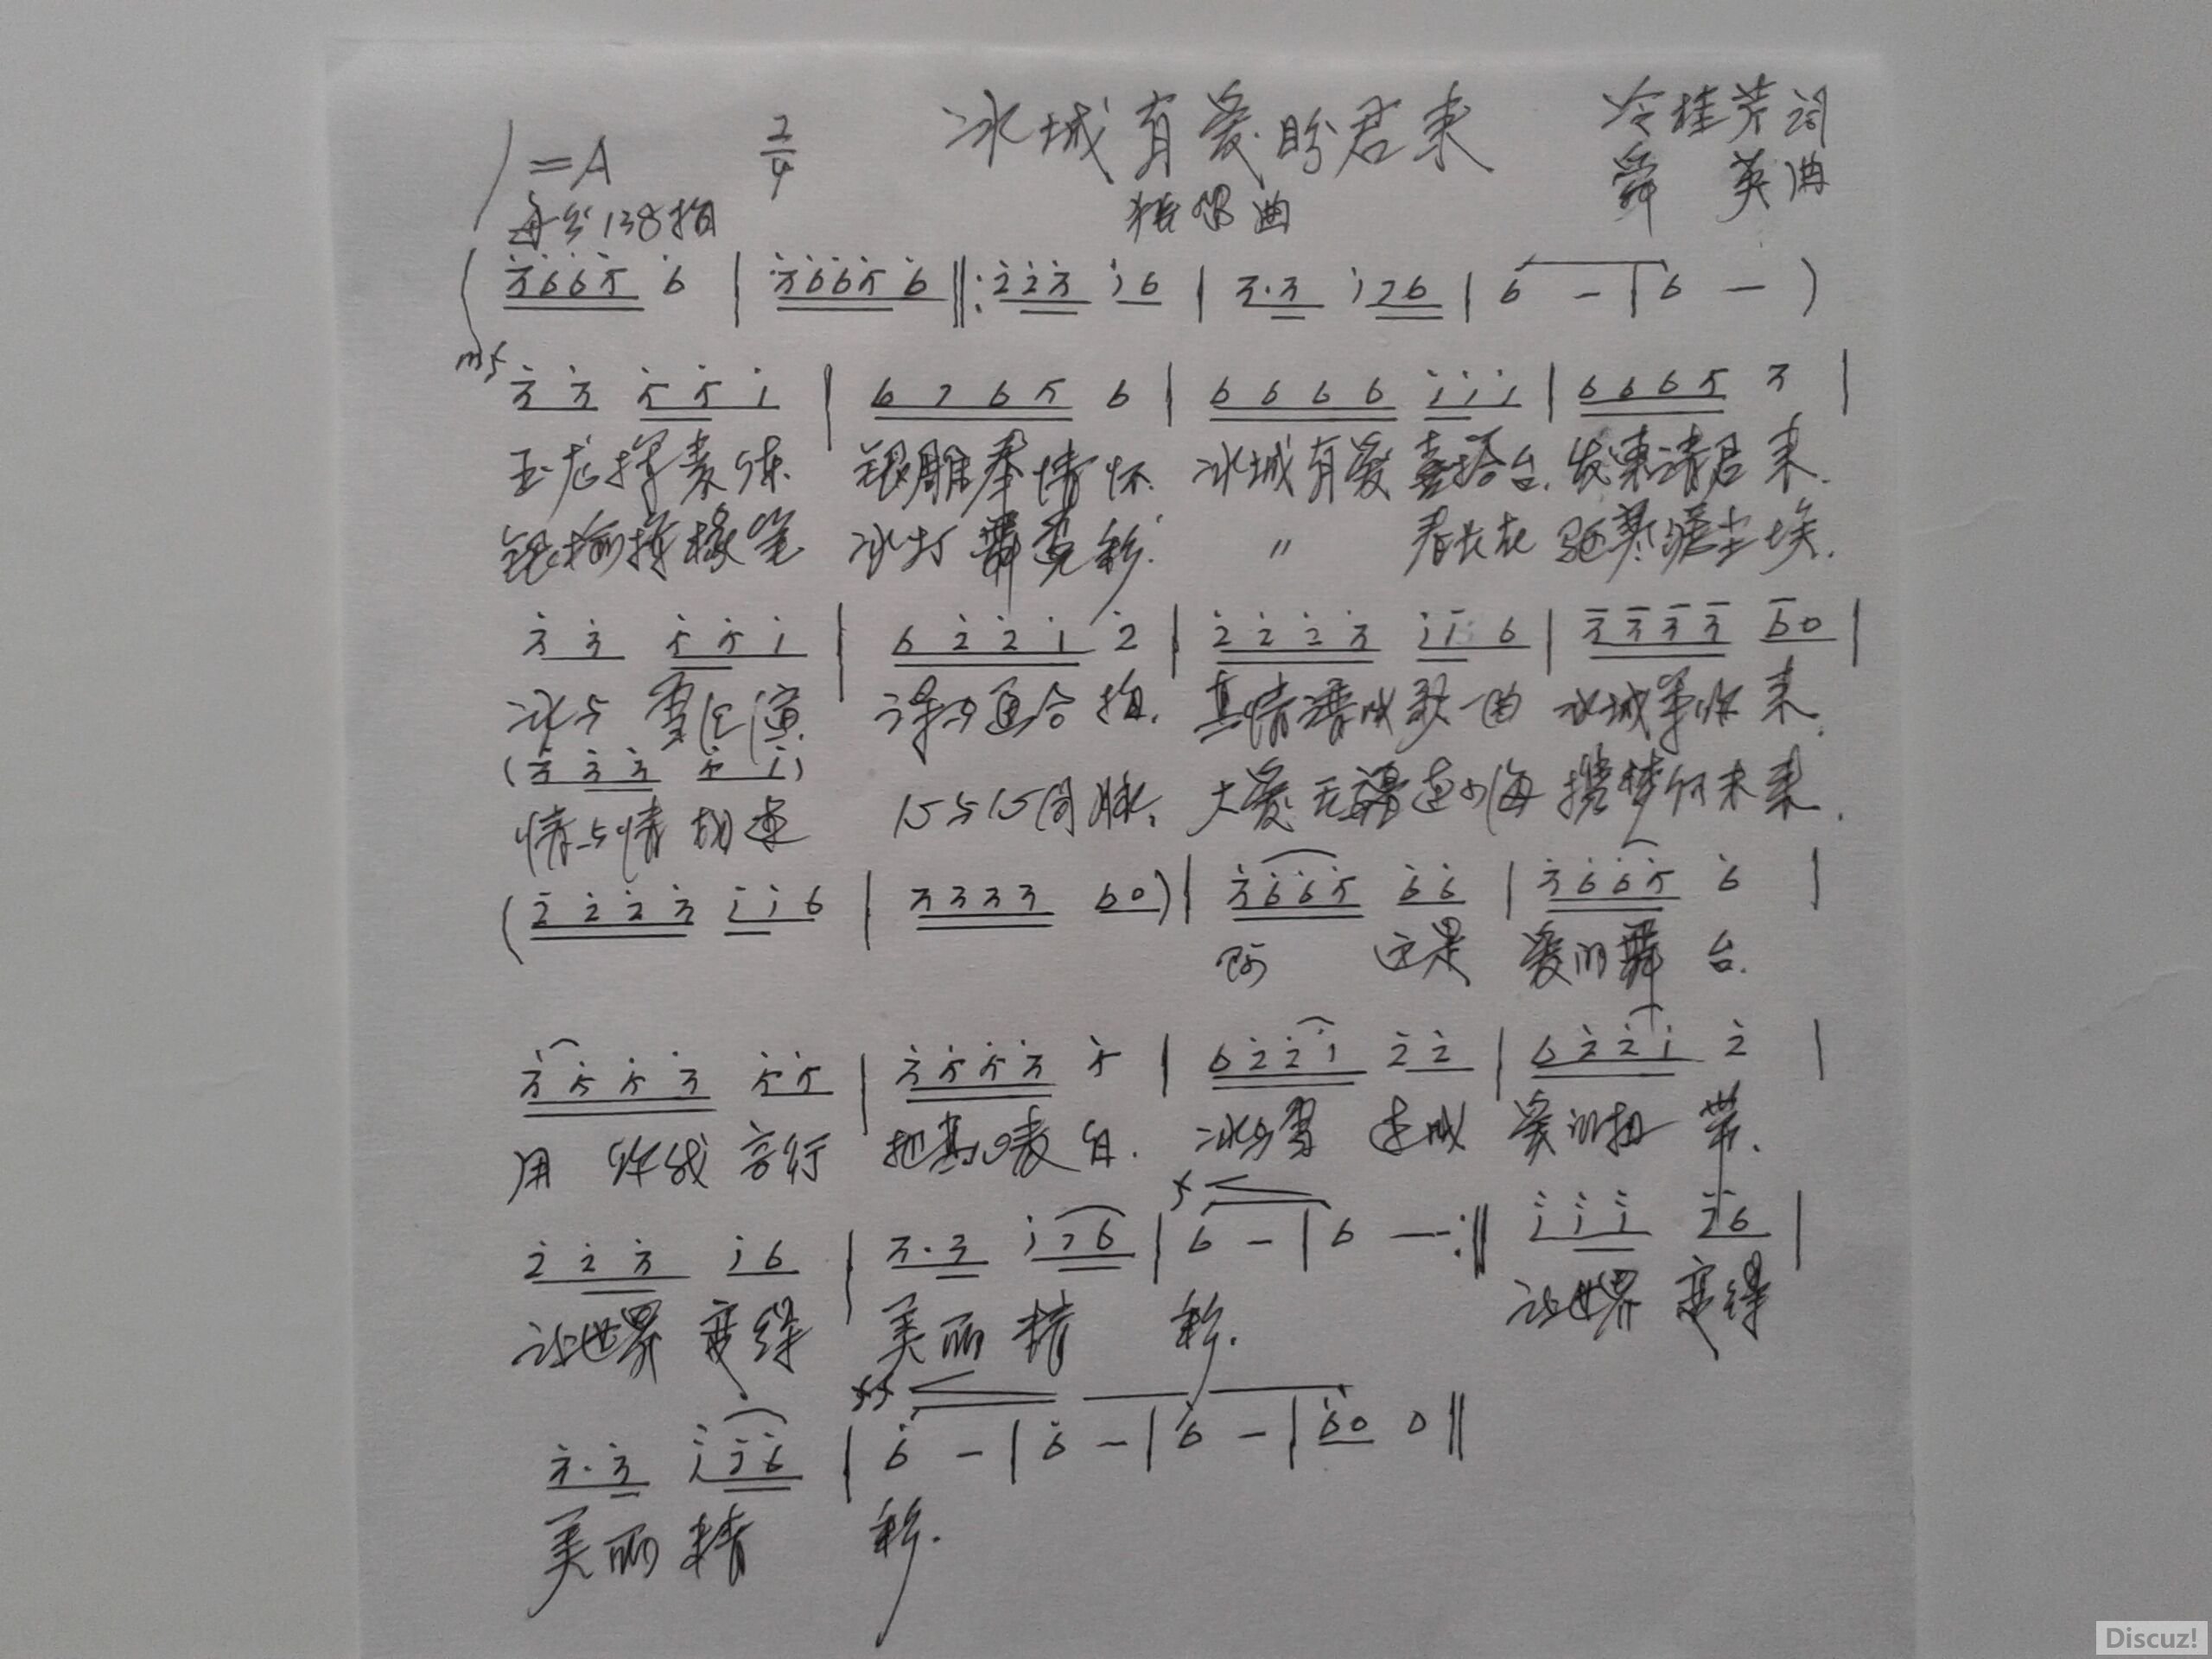 1=A 2/4 冰城有爱盼君来 冷桂芳词
每分138拍 狂想曲 舜 英曲
(3665 6 | 3665 6 ‖: 223 16 | 3·3 176 | 6 - | 6 - )
mf 3 3 5 5 1 | 6 7 6 5 6 | 6 6 6 6 1 1 1 | 6 6 6 5 3 |
玉龙挥素练 银雕奉情怀. 冰城有爱喜搭台. 发柬请君来.
银榆挥椽笔 冰灯舞竞彩. " 春长在 驱寒暖尘埃.
3 3 5 5 1 | 6 2 2 1 2 | 2 2 2 3 1 1 6 | 3 3 3 3 6 0 |
冰与雪 演 合拍. 真情谱成歌一曲 冰城等你来.
(3 3 3 5 1)
情与情 心与心同脉. 大爱无疆连山海 携梦向未来.
(2 2 2 3 1 1 6 | 3 3 3 3 6 0) | 3 6 6 5 6 6 | 3 6 6 5 6 |
啊 这是 爱的舞台.
3 5 5 3 5 5 | 3 5 5 3 5 | 6 2 2 1 2 2 | 6 2 2 1 2 |
用 言行 把真心表白. 冰与雪 连成 爱的纽带.
2 2 3 1 6 | 3·3 1 7 6 | f 6 - | 6 - :‖ 1 1 1 7 6 |
让世界 变得 美丽精 彩. 让世界 变得
3·3 1 7 6 | ff 6 - | 6 - | 6 - | 6 0 0 ‖
美丽精 彩.
Discuz!